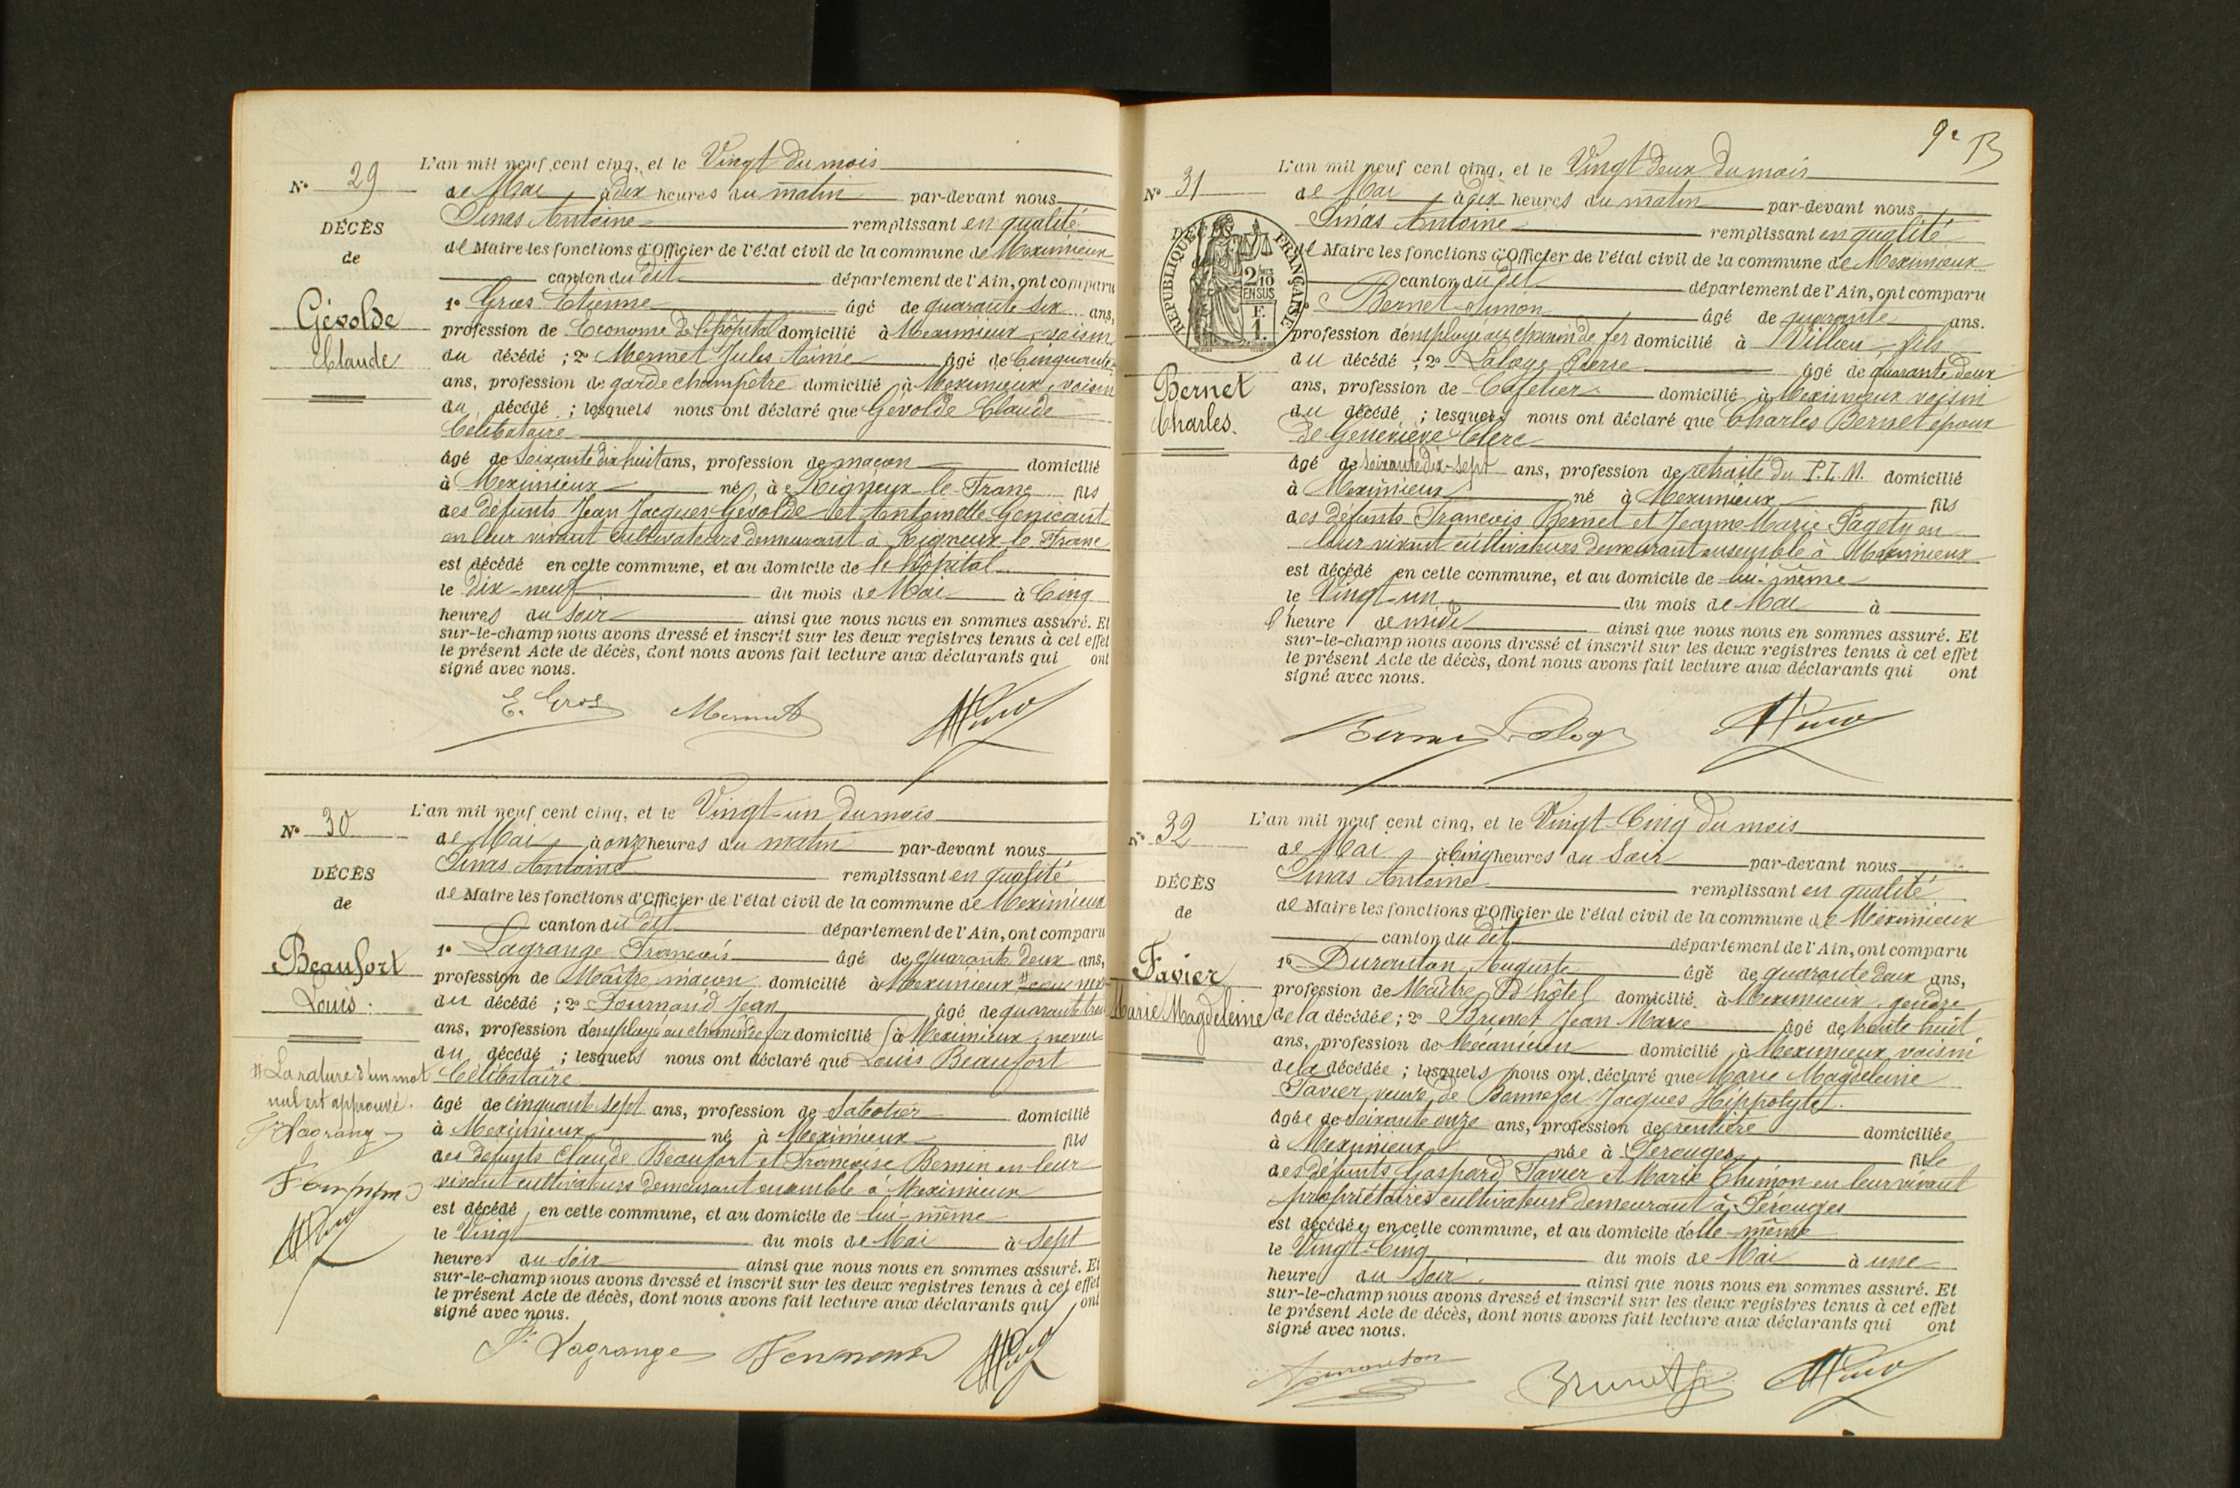 N° 29
DÉCÈS
de
Gévolde
Claude
L'an mil neuf cent cinq, et le Vingt du mois
de Mai à dix heures du matin par-devant nous
Pinas Antoine remplissant en qualité
de Maire les fonctions d'Officier de l'état civil de la commune de Meximieux
canton du dit département de l'Ain, ont comparu
1° Gros Etienne âgé de quarante six ans,
profession de Econome de l'hôpital domicilié à Meximieux, voisin
du décédé ; 2° Mermet Jules Aimé âgé de Cinquante
ans, profession de garde champêtre domicilié à Meximieux, voisin
du décédé ; lesquels nous ont déclaré que Gévolde Claude
Célibataire
âgé de Soixante dix huit ans, profession de maçon domicilié
à Meximieux né à Rigneux-le-Franc fils
des défunts Jean Jacques Gévolde et Antoinette Genicaut
en leur vivant cultivateurs demeurant à Rigneux-le-Franc
est décédé en cette commune, et au domicile de l'hôpital
le dix-neuf du mois de Mai à Cinq
heures du soir ainsi que nous nous en sommes assuré. Et
sur-le-champ nous avons dressé et inscrit sur les deux registres tenus à cet effet
le présent Acte de décès, dont nous avons fait lecture aux déclarants qui ont
signé avec nous.
E. Gros Mermet
N° 30
DÉCÈS
de
Beaufort
Louis.
La rature d'un mot
nul est approuvé.
F. Lagrange
L'an mil neuf cent cinq, et le Vingt-un du mois
de Mai à onze heures du matin par-devant nous
Pinas Antoine remplissant en qualité
de Maire les fonctions d'Officier de l'état civil de la commune de Meximieux
canton du dit département de l'Ain, ont comparu
1° Lagrange François âgé de quarante deux ans,
profession de Maître maçon domicilié à Meximieux
du décédé ; 2° Fournand Jean âgé de quarante trois
ans, profession d'employé au chemin de fer domicilié à Meximieux, neveu
du décédé ; lesquels nous ont déclaré que Louis Beaufort
Célibataire
âgé de cinquante sept ans, profession de Sabotier domicilié
à Meximieux né à Meximieux fils
des défunts Claude Beaufort et Françoise Bernin en leur
vivant cultivateurs demeurant ensemble à Meximieux
est décédé en cette commune, et au domicile de lui-même
le Vingt du mois de Mai à Sept
heures du soir ainsi que nous nous en sommes assuré. Et
sur-le-champ nous avons dressé et inscrit sur les deux registres tenus à cet effet
le présent Acte de décès, dont nous avons fait lecture aux déclarants qui ont
signé avec nous.
F. Lagrange
9e
N° 31
RÉPUBLIQUE FRANÇAISE
2/10 EN SUS
F. 1.
Bernet
Charles.
L'an mil neuf cent cinq, et le Vingt deux du mois
de Mai à dix heures du matin par-devant nous
Pinas Antoine remplissant en qualité
de Maire les fonctions d'Officier de l'état civil de la commune de Meximieux
canton du dit département de l'Ain, ont comparu
Bernet Simon âgé de quarante ans.
profession d'employé au chemin de fer domicilié à Villieu, fils
du décédé ; 2° Laloge Pierre âgé de quarante deux
ans, profession de Cafetier domicilié à Meximieux voisin
du décédé ; lesquels nous ont déclaré que Charles Bernet époux
de Geneviève Clerc
âgé de soixante dix-sept ans, profession de retraité du P.L.M. domicilié
à Meximieux né à Meximieux fils
des défunts François Bernet et Jeanne Marie Pagety en
leur vivant cultivateurs demeurant ensemble à Meximieux
est décédé en cette commune, et au domicile de lui-même
le Vingt-un du mois de Mai à
l'heure de midi ainsi que nous nous en sommes assuré. Et
sur-le-champ nous avons dressé et inscrit sur les deux registres tenus à cet effet
le présent Acte de décès, dont nous avons fait lecture aux déclarants qui ont
signé avec nous.
Bernet Laloge
N° 32
DÉCÈS
de
Favier
Marie Magdeleine
L'an mil neuf cent cinq, et le Vingt-Cinq du mois
de Mai à Cinq heures du Soir par-devant nous
Pinas Antoine remplissant en qualité
de Maire les fonctions d'Officier de l'état civil de la commune de Meximieux
canton du dit département de l'Ain, ont comparu
1° Durouton Auguste âgé de quarante deux ans,
profession de Maître d'hôtel domicilié à Meximieux gendre
de la décédée ; 2° Brunet Jean Marie âgé de trente huit
ans, profession de Mécanicien domicilié à Meximieux voisin
de la décédée ; lesquels nous ont déclaré que Marie Magdeleine
Favier, veuve de Bonnefer Jacques Hippolyte
âgée de soixante onze ans, profession de rentière domiciliée
à Meximieux née à Pérouges fille
des défunts Gaspard Favier et Marie Chimon en leur vivant
propriétaires cultivateurs demeurant à Pérouges
est décédée en cette commune, et au domicile d'elle-même
le Vingt-Cinq du mois de Mai à une
heure du Soir ainsi que nous nous en sommes assuré. Et
sur-le-champ nous avons dressé et inscrit sur les deux registres tenus à cet effet
le présent Acte de décès, dont nous avons fait lecture aux déclarants qui ont
signé avec nous.
Brunet